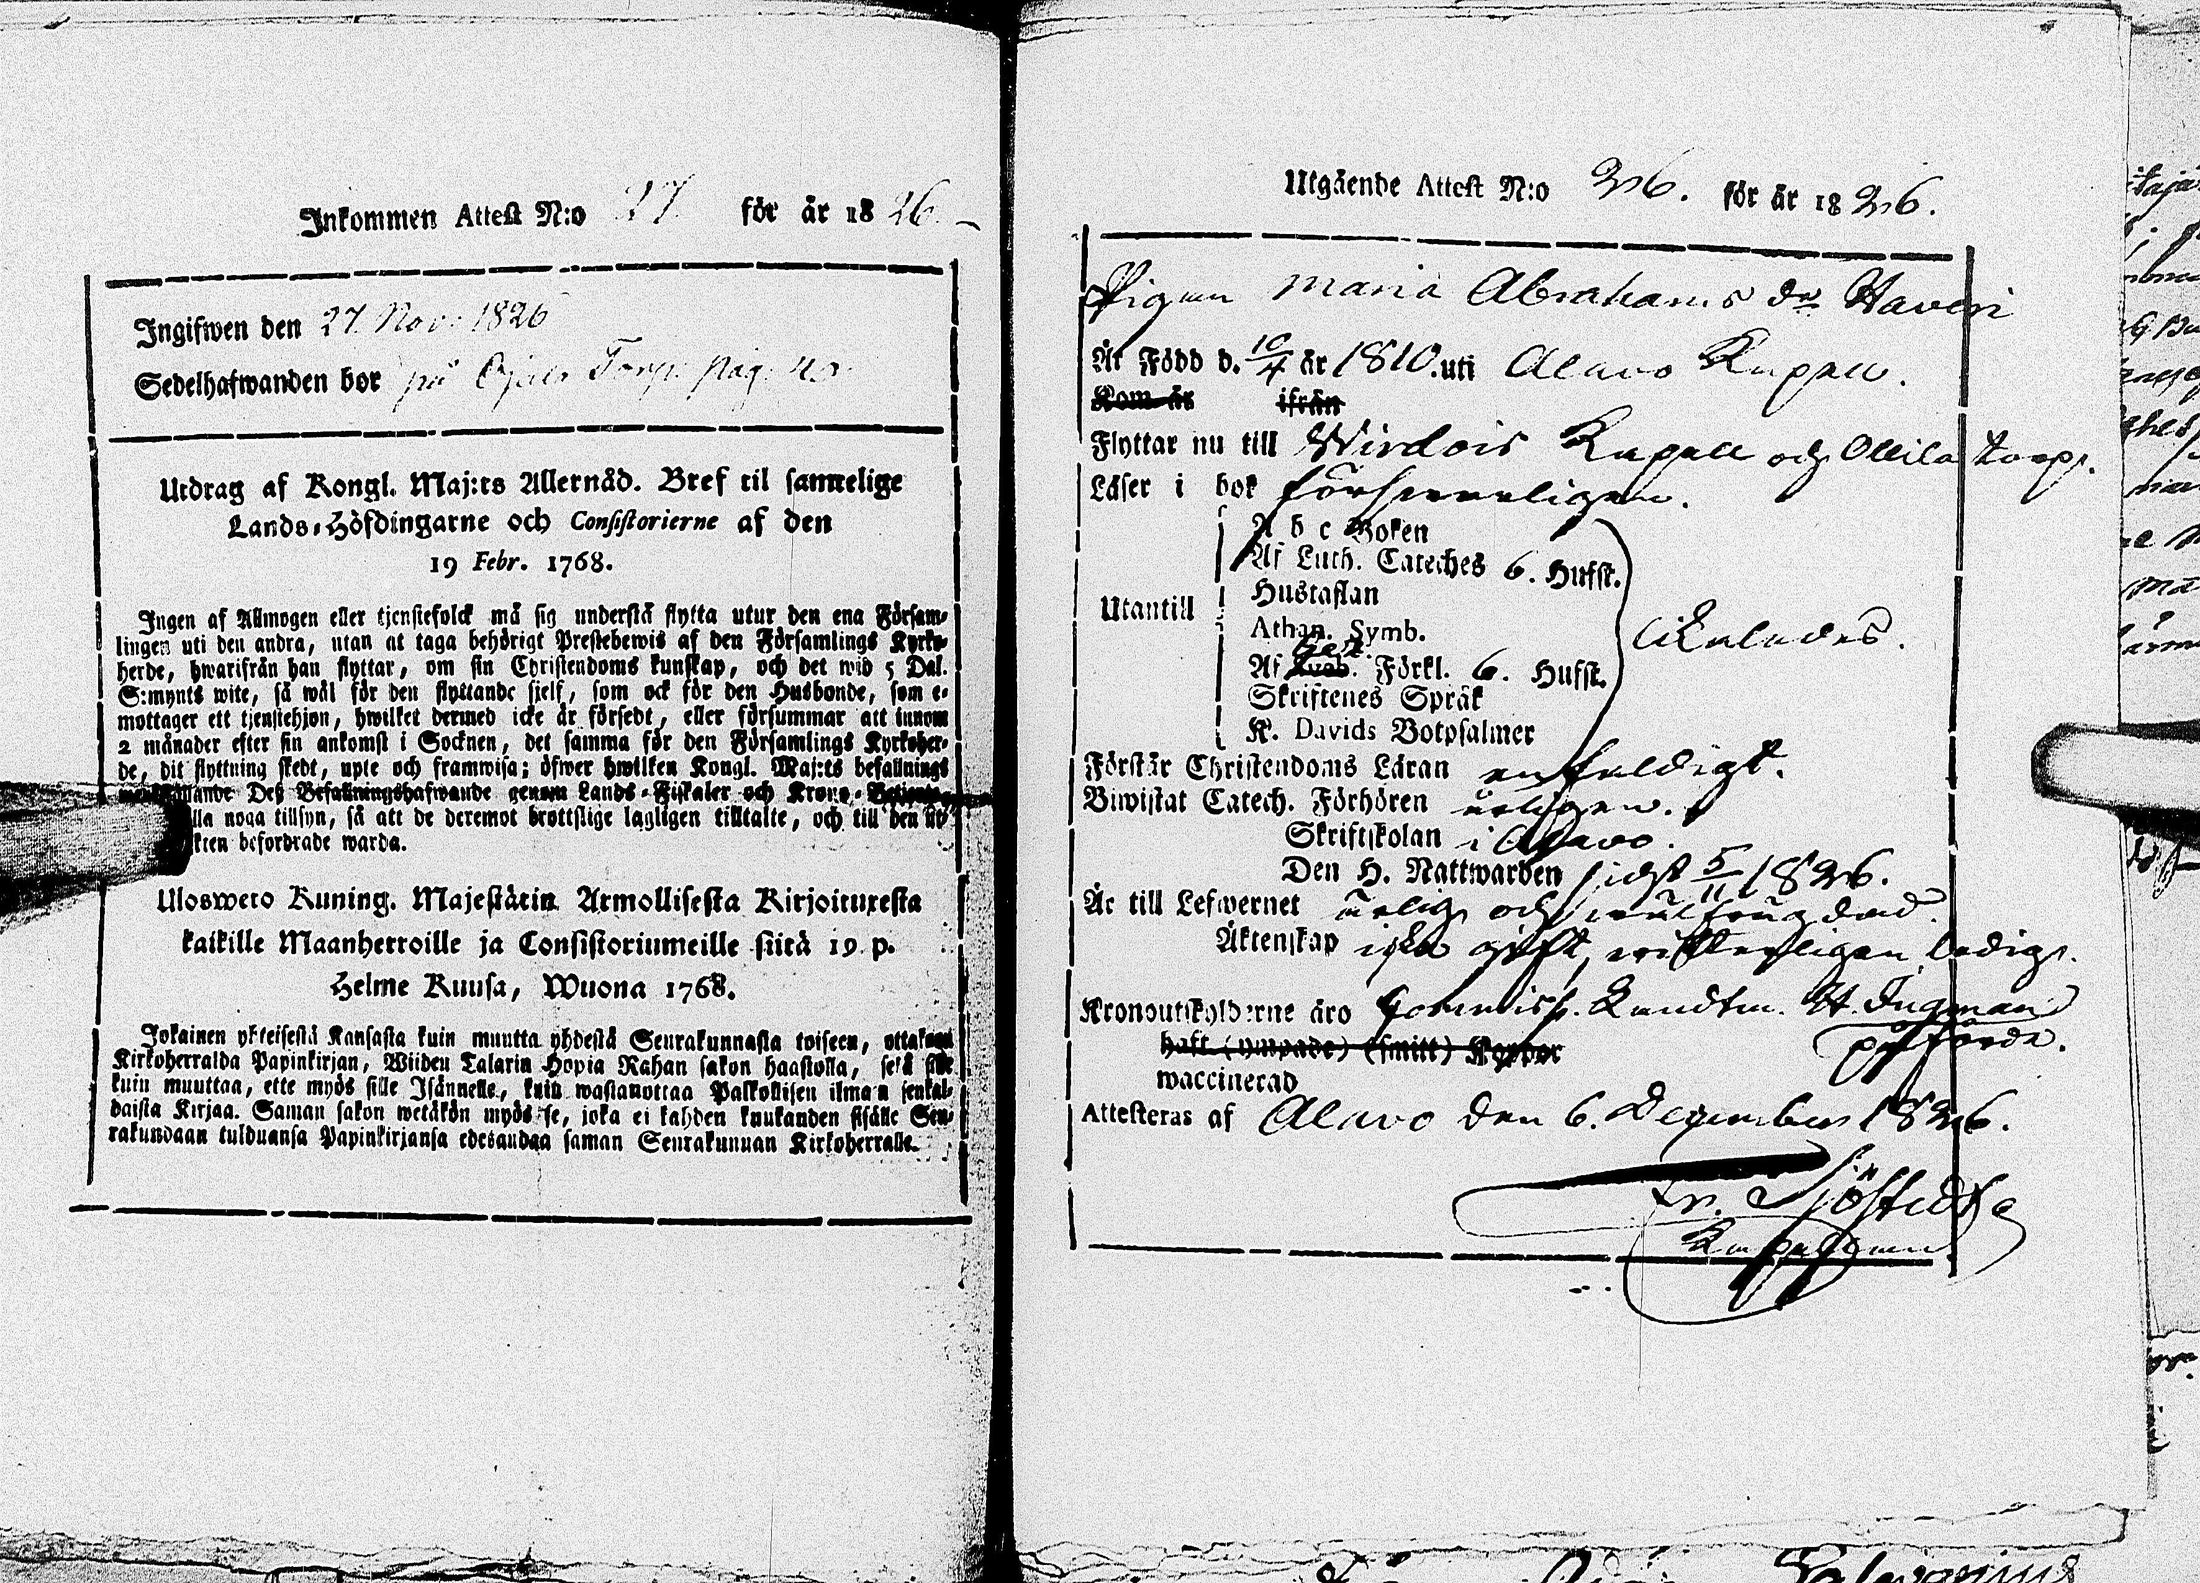 Inkommen Attest N:o 27. för år 1826.
Ingifwen den 27. Nov: 1826
Sedelhafwanden bor på Torp pag.
Utdrag af Kongl. Maj:ts Allernåd. Bref til samtelige
Lands-Höfdingarne och Consistorierne af den
19 Febr. 1768.
Ingen af Allmogen eller tjenstefolck må sig understå flytta utur den ena Försam-
lingen uti den andra, utan at taga behörigt Prestebewis af den Församlings Kyrko-
herde, hwarifrån han flyttar, om sin Christendoms kunskap, och det wid 5 Dal.
S:mynts wite, så wäl för den flyttande sjelf, som ock för den Husbonde, som e-
mottager ett tjenstehjon, hwilket dermed icke är försedt, eller försummar att innom
2 månader efter sin ankomst i Socknen, det samma för den Församlings Kyrkoher-
de, dit flyttning skedt, upte och framwisa; öfwer hwilken Kongl. Maj:ts befallnings
Deß Befallningshafwande genom Lands-Fiskaler och Krono-
noga tillsyn, så att de deremot brottslige lagligen tilltalte, och till den
befordrade warda.
Uloswero Kuning. Majestätin Armollisesta Kirjoituxesta
kaikille Maanherroille ja Consistoriumeille siitä 19 p.
Helme Kuusa, Wuona 1768.
Jokainen ykteisestä Kansasta kuin muutta yhdestä Seurakunnasta toiseen, ottakaan
Kirkoherralda Papinkirjan, Wiiden Talarin Hopia Rahan sakon haastolla, sekä sille
kuin muuttaa, ette myös sille Isännelle, kuin wastanottaa Palkollisen ilman senkal-
daista Kirjaa. Saman sakon wetäkön myös se, joka ei kahden kuukauden sisälle Seu-
rakundaan tulduansa Papinkirjansa edesandaa saman Seurakunnan Kirkoherralle.
Utgående Attest N:o 26. för år 1826.
Pigan Maria Abrahams dr Haveri
Är Född d. 10/4 år 1810. uti Alavo Kapell.
Kom år ifrån
Flyttar nu till Wirdois Kapell och Ollila torp.
Läser i bok försvarligen.
A b c Boken
Af Luth. Cateches 6. Hufst.
Hustaflan
Utantill
Athan. Symb.
likaledes.
Af Förkl. 6. Hufst.
Skriftenes Språk
K. Davids Botpsalmer
Förstår Christendoms Läran enfaldigt.
Biwistat Catech. Förhören årligen.
Skriftskolan i Alavo.
Den H. Nattwarden sidst 5/11 1826.
Är till Lefwernet ärlig och wälfrägdad.
Äktenskap icke gift, witterligen ledig.
Kronoutskylderne äro Commiss. Landtm. H. Ingman
påförde.
haft (ympade) (smitt) Koppor
waccinerad
Attesteras af Alavo den 6. December 1826.
Fr. Sjöstedt
Kapellman.